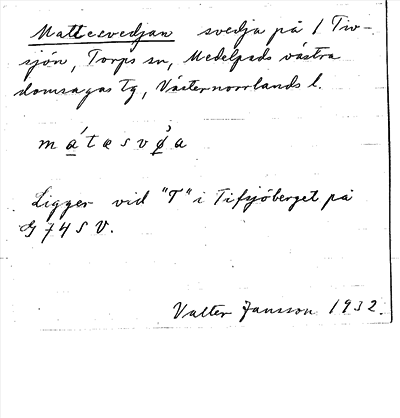 Mattesvedjan svedja på 1 Tiv-
sjön, Torps sn, Medelpads västra
domsagas tg, Västernorrlands l.
Ligger vid "T" i Tifsjöberget på
G 74 S V.
Valter Jansson 1932.